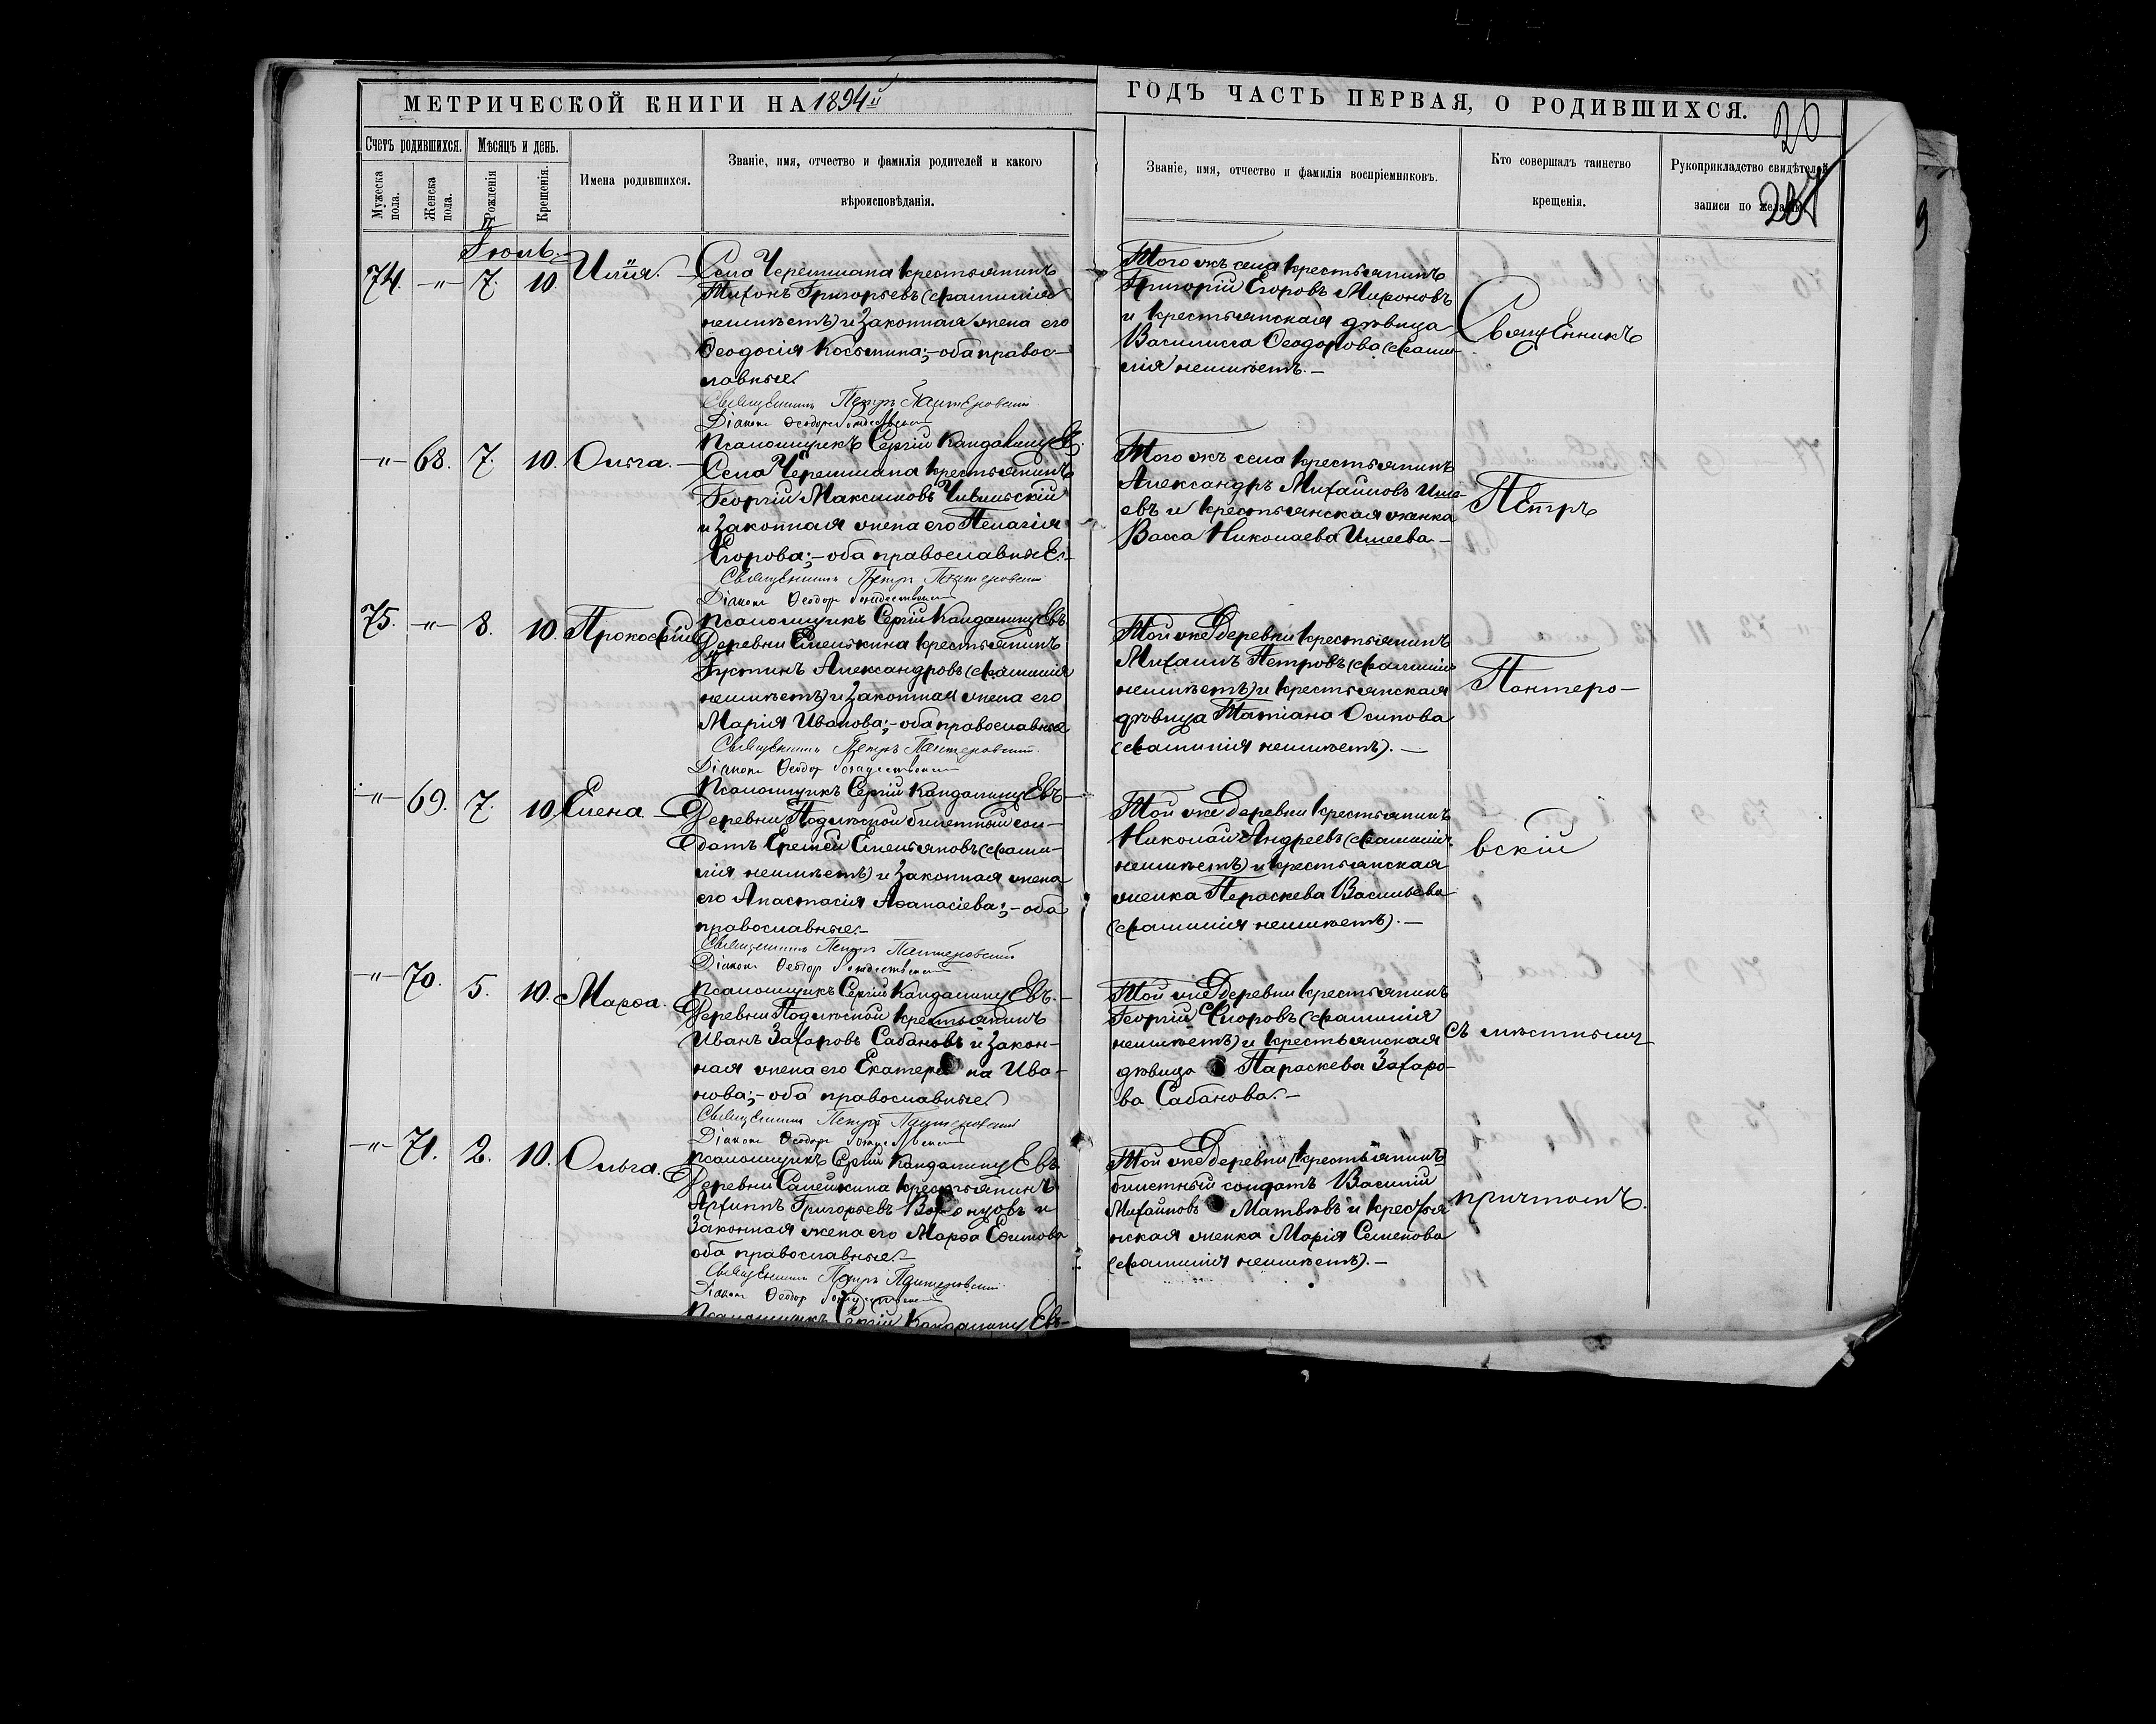 МЕТРИЧЕСКОЙ КНИГИ НА 1894й
ГОДЪ ЧАСТЬ ПЕРВАЯ, О РОДИВШИХСЯ.
20
Счетъ родившихся.
Мѣсяцъ и день.
Имена родившихся.
Званіе, имя, отчество и фамилія родителей и какого
вѣроисповѣданія.
Мужеска пола.
Женска пола.
Рожденія
Крещенія.
Званіе, имя, отчество и фамилія воспріемниковъ.
Кто совершалъ таинство
крещенія.
Рукоприкладство свидѣтелей
записи по желанію
Іюль.
74. -"- 7. 10. Илія.
Села Черемшана крестьянинъ
Тихонъ Григорьевъ (фамиліи
неимѣетъ) и законная жена его
Ѳеодосія Косьмина; – оба правос-
лавные.
Священникъ Петръ Пантеровскій
Діаконъ Ѳеодоръ Рождественскій
Псаломщикъ Сергій Кандалинцевъ.
Того жъ села крестьянинъ
Григорій Егоровъ Мироновъ
и крестьянская дѣвица
Василисса Ѳеодорова (фами-
лія неимѣетъ. –
-"- 68. 7. 10. Ольга. –
Села Черемшана крестьянинъ
Георгій Максимовъ Чивильскій
и законная жена его Пелагія
Егорова; – оба православные. –
Священникъ Петръ Пантеровскій
Діаконъ Ѳеодоръ Рождественскій
Псаломщикъ Сергій Кандалинцевъ
Того жъ села крестьянинъ
Александръ Михайловъ Ише-
евъ и крестьянская женка
Васса Николаева Ишеева –
75. -"- 8. 10. Прокофій
Деревни Емелькина крестьянинъ
Іустинъ Александровъ (фамилія
неимѣетъ) и законная жена его
Марія Иванова; – оба православные
Священникъ Петръ Пантеровскій.
Діаконъ Ѳеодоръ Рождественскій
Псаломщикъ Сергій Кандалинцевъ –
Той же деревни крестьянинъ
Михаилъ Петровъ (фамилія
неимѣетъ) и крестьянская
дѣвица Татіана Осипова
(фамилія неимѣетъ). –
-"- 69. 7. 10. Елена. –
Деревни Подлѣсной билетный сол-
датъ Еремей Емельяновъ (фами-
лія неимѣетъ) и законная жена
его Анастасія Аѳанасіева; – оба
православные. –
Священникъ Петръ Пантеровскій
Діаконъ Ѳеодоръ Рождественскій
Псаломщикъ Сергій Кандалинцевъ. –
Той же деревни крестьянинъ
Николай Андреевъ (фамилія
неимѣетъ) и крестьянская
женка Параскева Васильева
(фамилія неимѣетъ). –
-"- 70. 5. 10. Марѳа.
Деревни Подлѣсной крестьянинъ
Иванъ Захаровъ Сабановъ и закон-
ная жена его Екатерина Ива-
нова; – оба православные.
Священникъ Петръ Пантеровскій
Діаконъ Ѳеодоръ Рождественскій
Псаломщикъ Сергій Кандалинцевъ
Той же деревни крестьянинъ
Георгій (фамилія
неимѣетъ) и крестьянская
дѣвица Параскева Захаро-
ва Сабанова. –
-"- 71. 2. 10. Ольга.
Деревни Саперкина крестьянинъ
Архиппъ Григорьевъ и
законная жена его Марѳа Еѳимова
оба православные. –
Священникъ Петръ Пантеровскій
Діаконъ Ѳеодоръ Рождественскій
Псаломщикъ Сергій Кандалинцевъ –
Той же деревни [крестьянинъ]
билетный солдатъ Василій
Михайловъ Матвѣевъ и крестья
нская женка Марія Семенова
(фамилія неимѣетъ). –
Священникъ
Петръ
Пантеро –
вскій
съ мѣстнымъ
причтомъ.